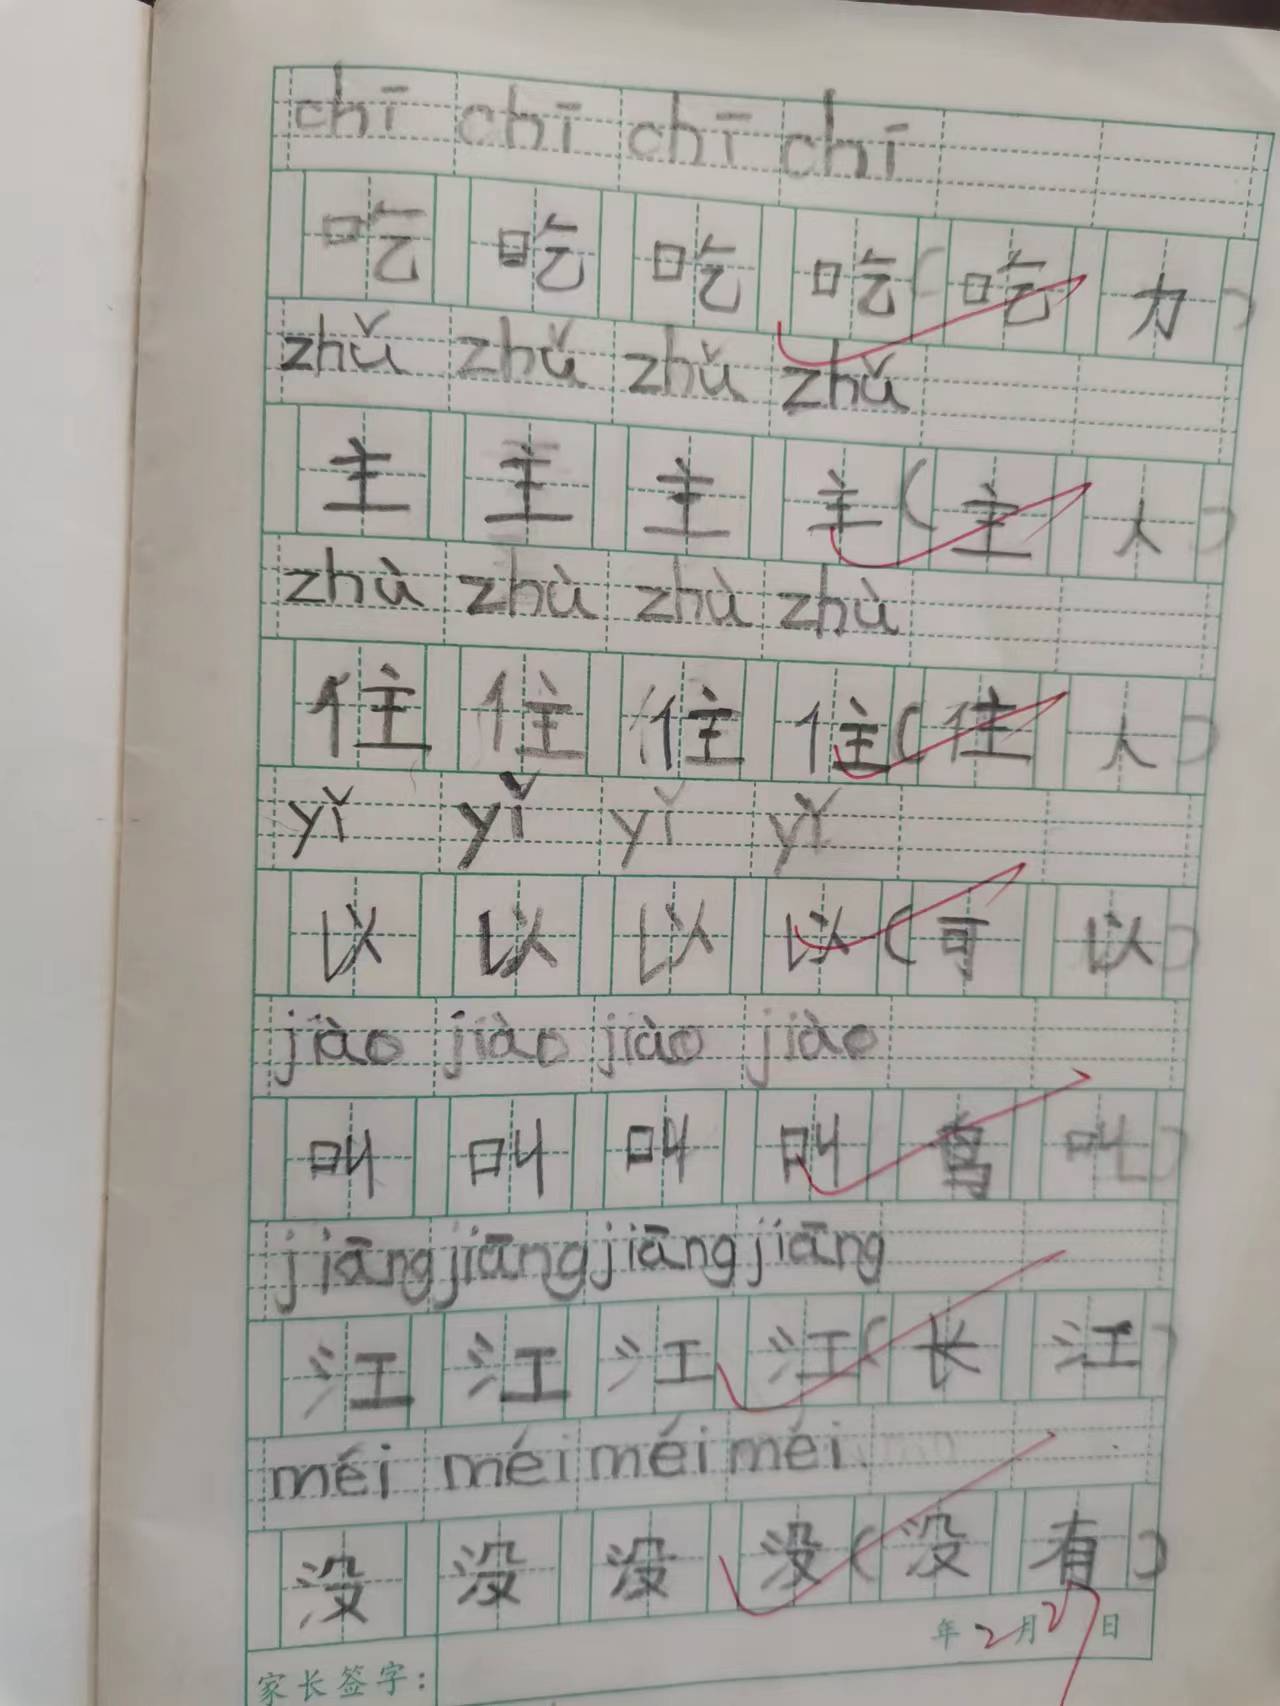 chī chī chī chī
吃 吃 吃 吃(吃 力)
zhǔ zhǔ zhǔ zhǔ
主 主 主 主(主 人)
zhù zhù zhù zhù
住 住 住 住(住 人)
yǐ yǐ yǐ yǐ
以 以 以 以(可 以)
jiào jiào jiào jiào
叫 叫 叫 叫 鸟 叫)
jiāng jiāng jiāng jiāng
江 江 江 江(长 江)
méi méi méi méi
没 没 没 没(没 有)
年2月27日
家长签字: